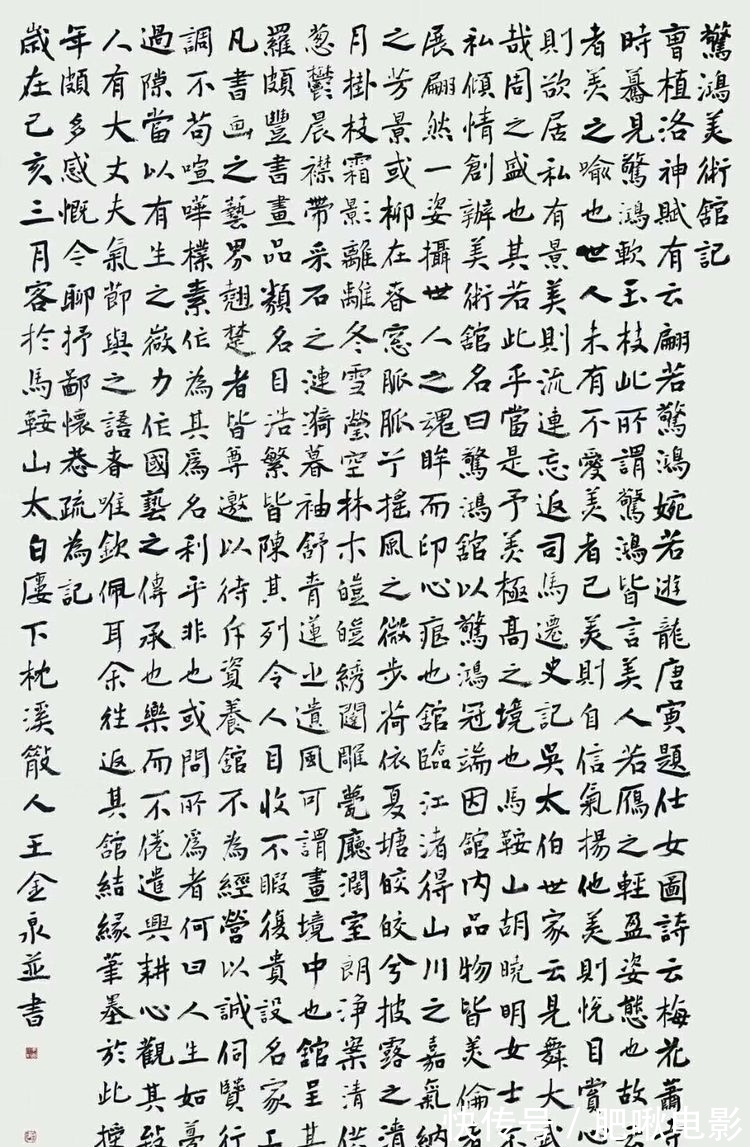 驚鴻美術舘記
曹植洛神賦有云翩若驚鴻婉若遊龍唐寅題仕女圖詩云梅花蕭
時驀見驚鴻軟玉枝此所謂驚鴻皆言美人若鴈之輕盈姿態也故
者美之喻也世人未有不愛美者已美則自信氣揚他美則悅目賞心
則欲居私有景美則流連忘返司馬遷史記吳太伯世家云見舞大武
哉周之盛也其若此乎當是予美極高之境也馬鞍山胡曉明女士
私傾情創辦美術舘名曰驚鴻舘以驚鴻冠端因舘内品物皆美倫
展翩然一姿攝世人之魂眸而印心痕也舘臨江渚得山川之嘉氣納
之芳景或柳在春窓脈脈兮摇風之微步荷依夏塘皎皎兮披露之清
月掛枝霜影離離冬雪瑩空林木皚皚綉闥雕甍廳濶室朗净案清供
葱鬱晨襟帶采石之漣漪暮袖舒青蓮之遺風可謂畫境中也舘呈其
羅頗豐書畫品類名目浩繁皆陳其列令人目收不暇復貴設名家工
凡書画之藝界翹楚者皆尊邀以待斥資養舘不為經營以誠伺贊行
調不苟喧嘩樸素作為其爲名利乎非也或問所爲者何曰人生如
過隙當以有生之微力作國藝之傳承也樂而不倦遣興耕心觀其致
人有大丈夫氣節與之語者唯欽佩耳余往返其舘結緣筆墨於此
年頗多感慨今聊抒鄙懷恭疏為記
歲在己亥三月客於馬鞍山太白廔下枕溪散人王金泉並書
快传号／肥啾电影